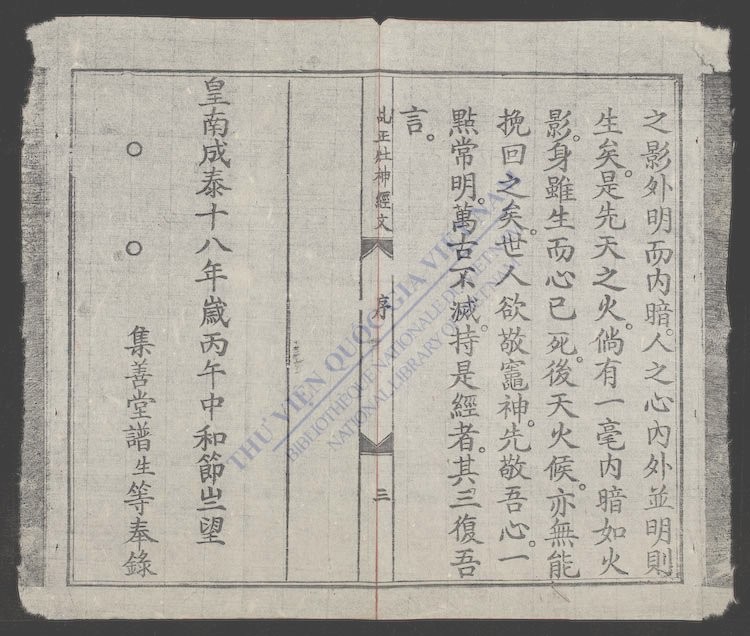 之影外明而内暗。人之心内外並明則
生矣。是先天之火。倘有一毫内暗如火
影。身雖生而心已死。後天火候。亦無能
挽回之矣。世人欲敬竈神。先敬吾心。一
點常明。萬古不滅。持是經者。其三復吾
言。
乩正灶神經文 序 三
皇南成泰十八年歲丙午中和節望
○ ○ 集善堂譜生等奉錄
THƯ VIỆN QUỐC GIA VIỆT NAM
BIBLIOTHÈQUE NATIONALE DU VIETNAM
NATIONAL LIBRARY OF VIETNAM